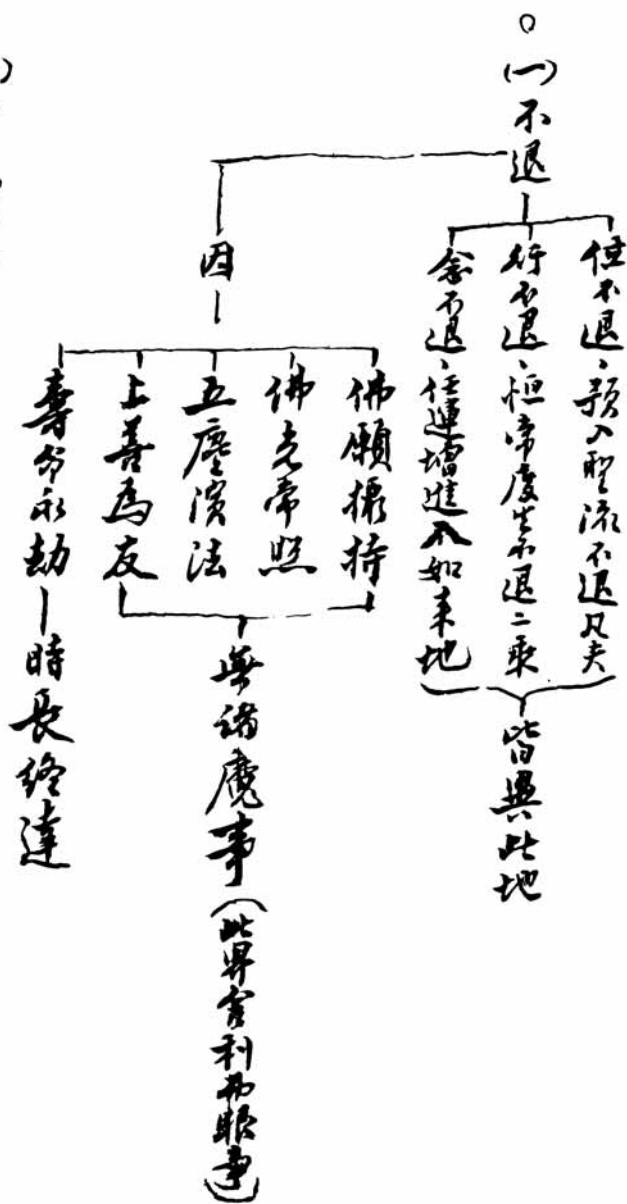 ○(一)不退
位不退、預入聖流不退凡夫
行不退、恒常度生不退二乘
念不退、任運增進入如來地
皆異此地
因
佛願攝持
佛光常照
五塵演法
上善為友
無諸魔事(此舉舍利弗眼事)
壽命永劫—時長終達